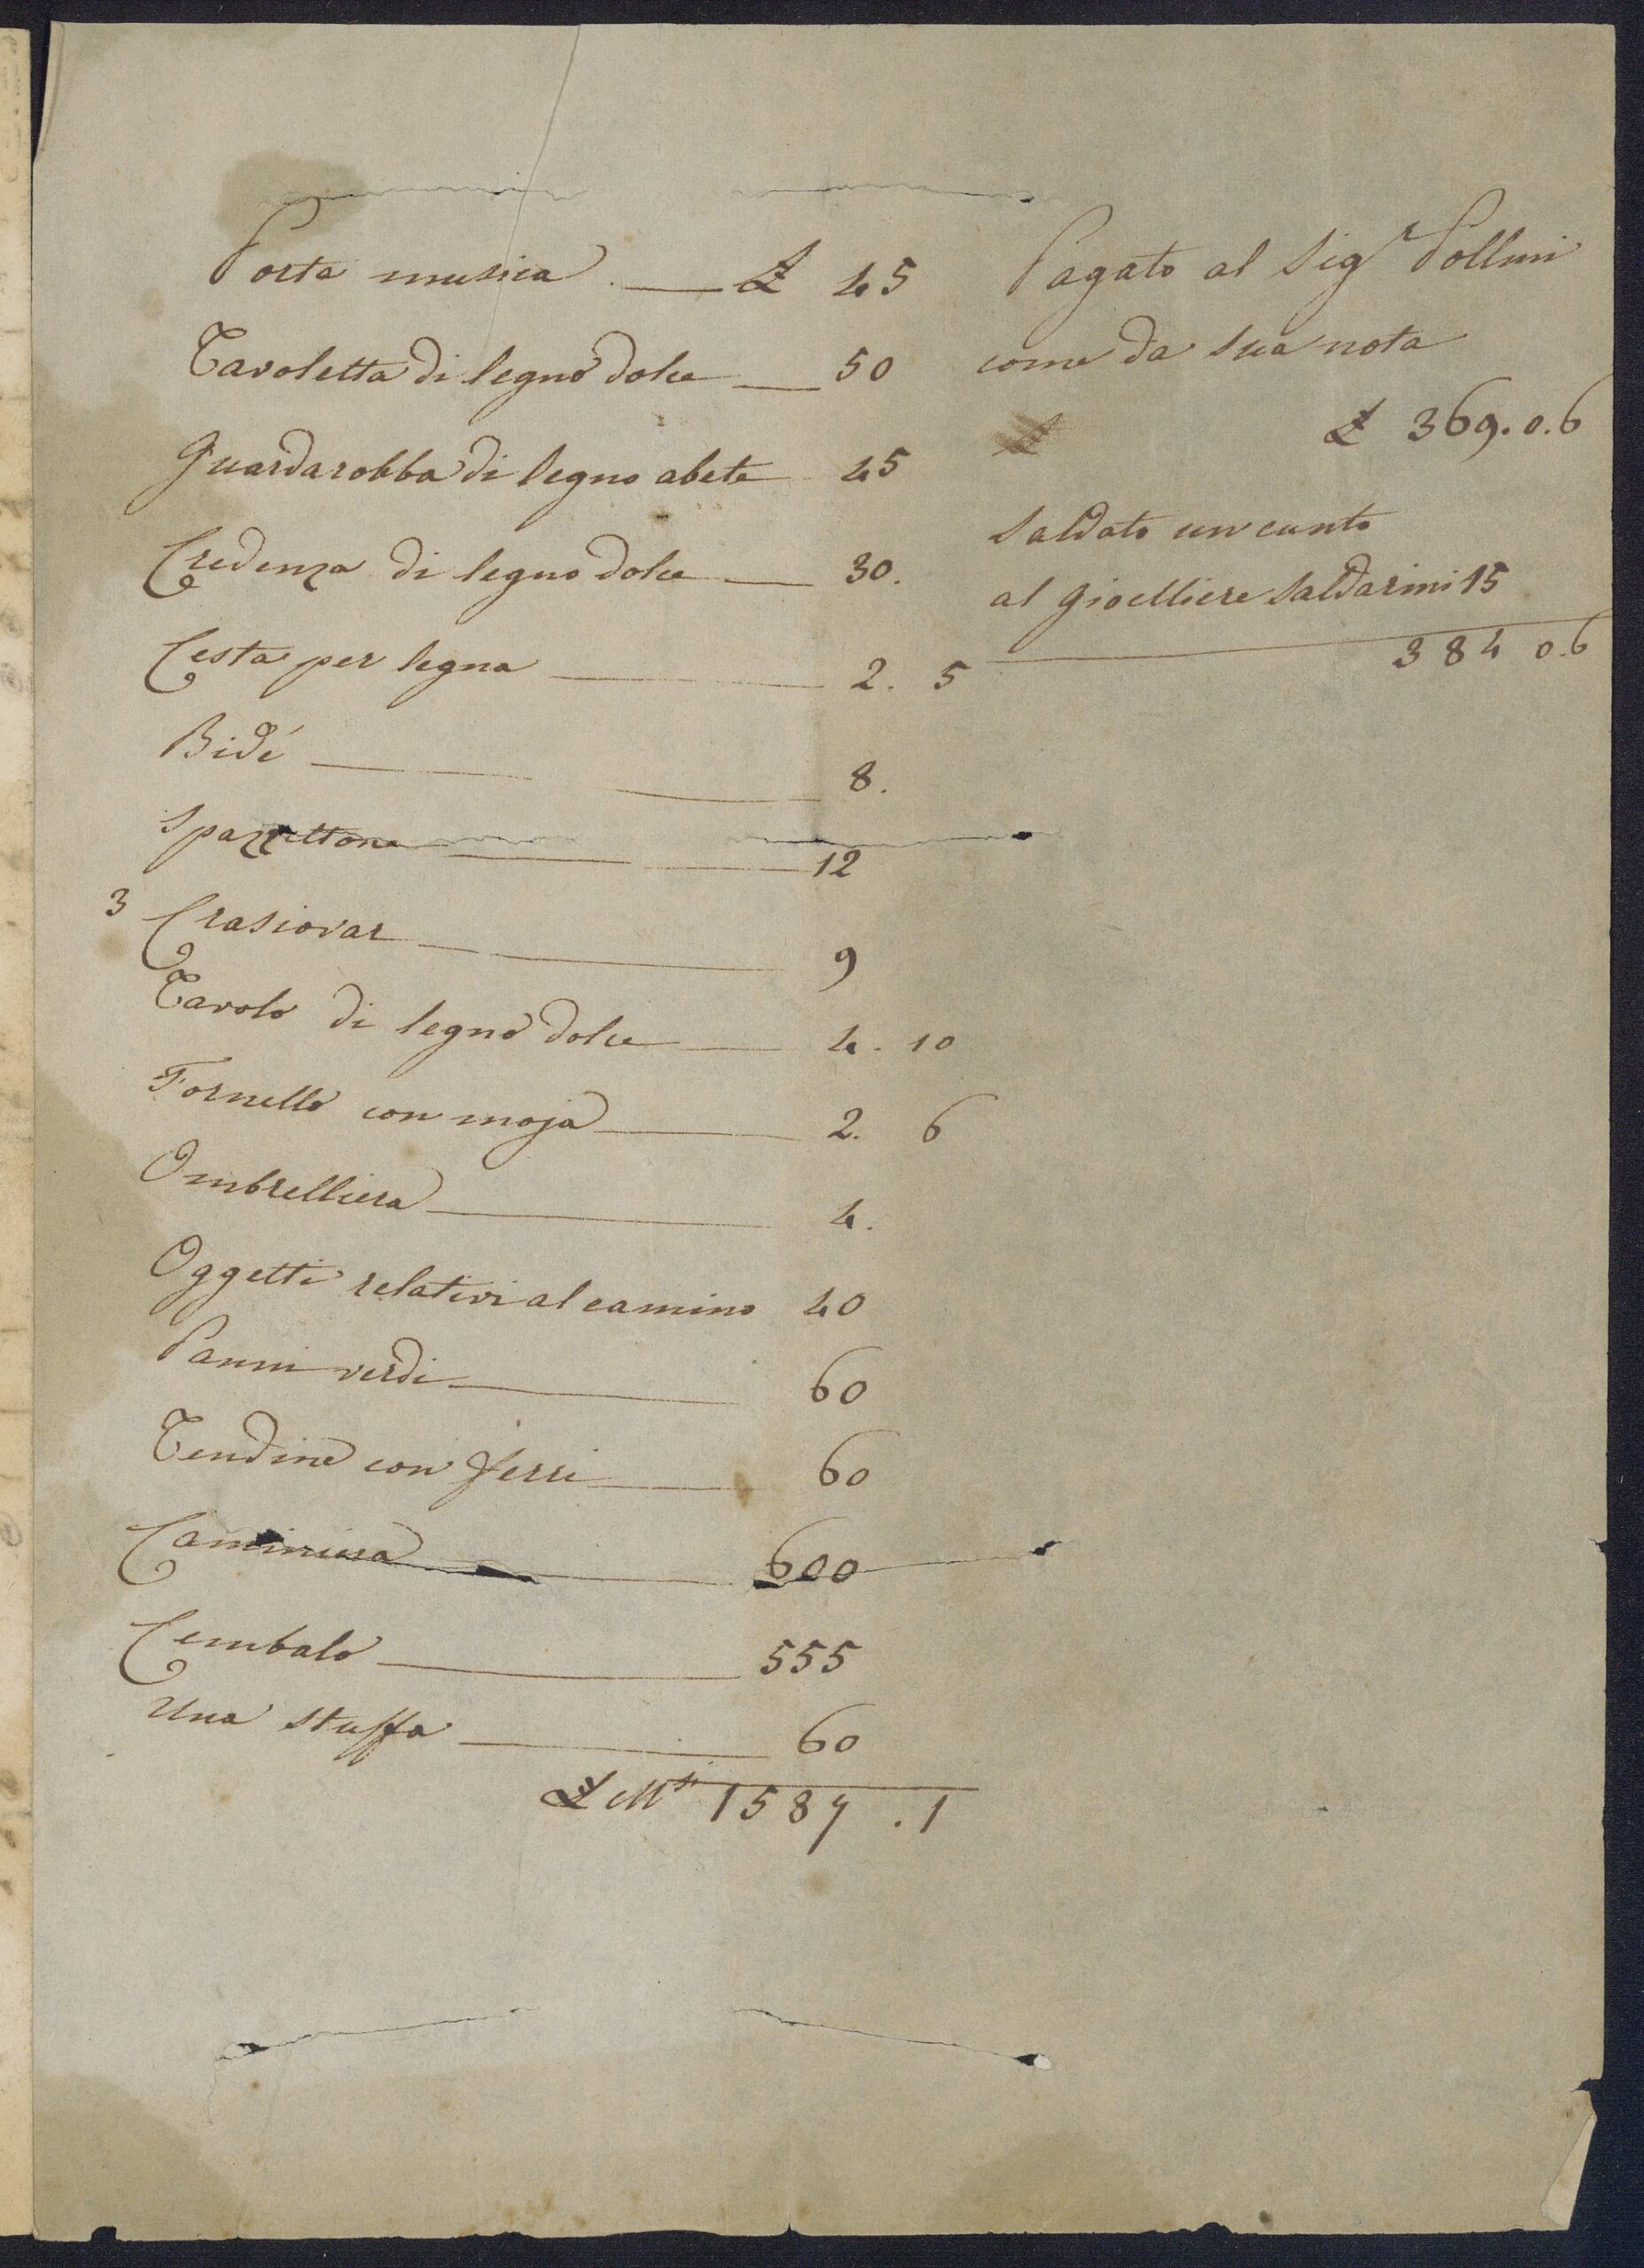 Porta musica £ 45
Tavoletta di legno dolce 50
Guardarobba di legno abete 45
Credenza di legno dolce 30.
Cesta per legna 2. 5
Bidé 8.
Spazzettone 12
3 Crasiovar 9
Tavolo di legno dolce 4. 10
Fornello con moja 2. 6
Ombrelliera 4.
Oggetti relativi al camino 40
Panni verdi 60
Tendine con ferri 60
600
Cembalo 555
Una stuffa 60
£ M.si 1587 . 1
Pagato al Sigr Pollini
come da sua nota
£ 369.0.6
Saldato un cunto
al Gioelliere Saldarini 15
384 0.6